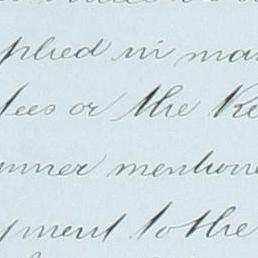 plied in man
tees or the Re
anner mentione
yment to the